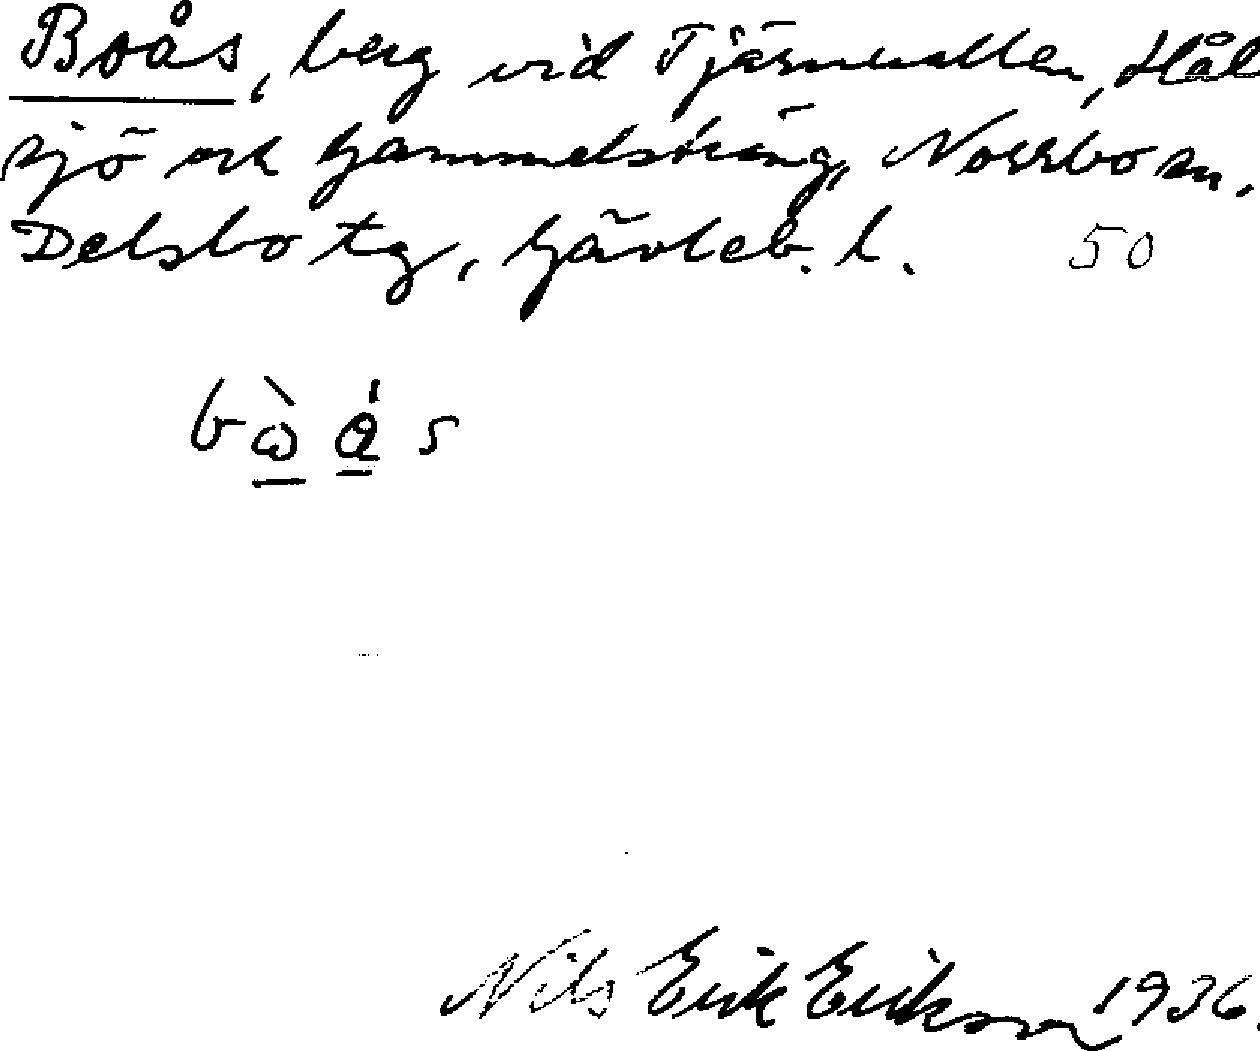 Boås, berg vid Tjärnvallen, Hål
sjö och Gammelsträng, Norrbo sn,
Delsbo tg, Gävleb. l. 50
bὼ a̍ s
Nils Erik Erikson 1936.